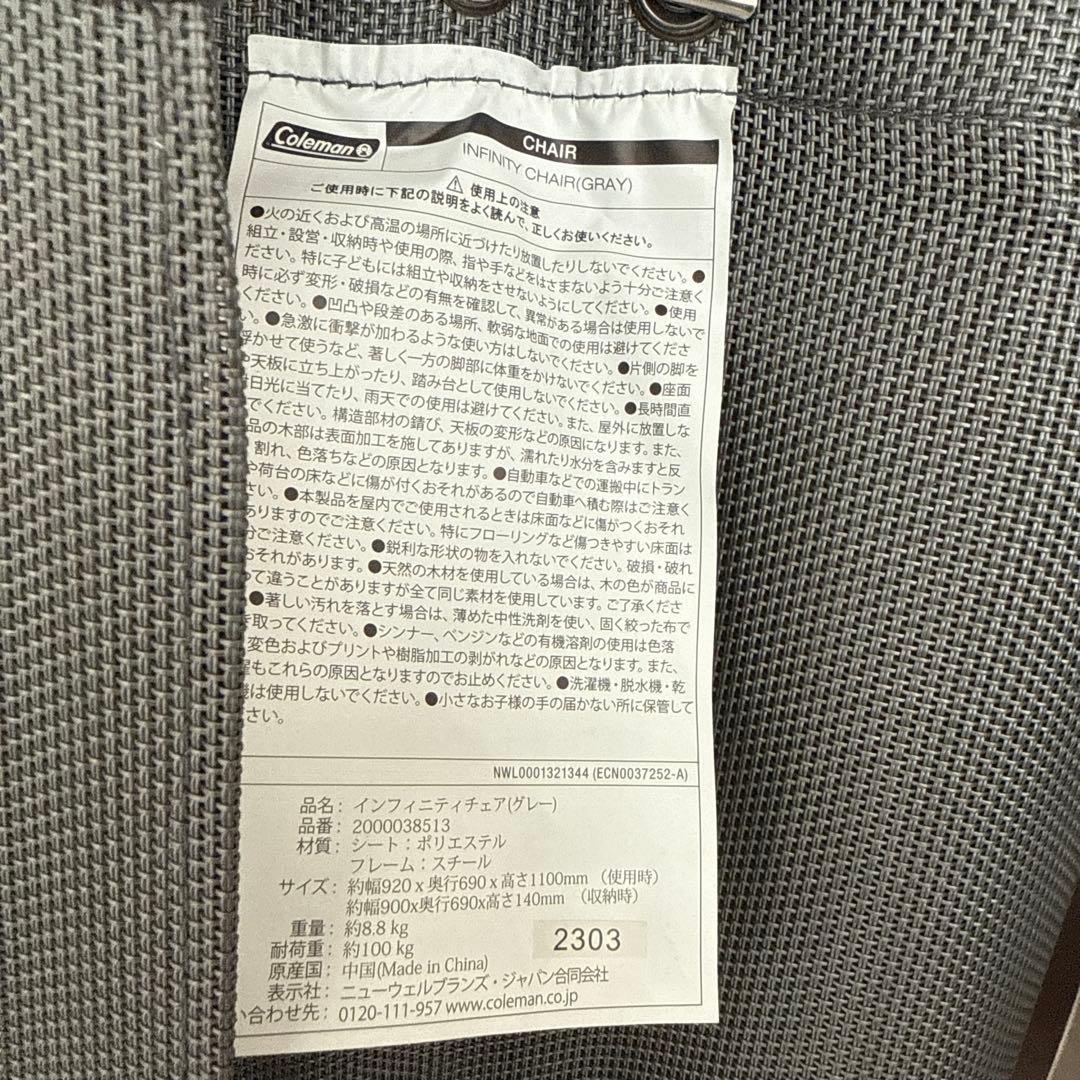 Coleman
CHAIR
INFINITY CHAIR(GRAY)
⚠ 使用上の注意
ご使用時に下記の説明をよく読んで、正しくお使いください。
●火の近くおよび高温の場所に近づけたり放置したりしないでください。●
組立・設営・収納時や使用の際、指や手などをはさまないよう十分ご注意く
ださい。特に子どもには組立や収納をさせないようにしてください。●使用
時に必ず変形・破損などの有無を確認して、異常がある場合は使用しないで
ください。●凹凸や段差のある場所、軟弱な地面での使用は避けてくださ
い。●急激に衝撃が加わるような使い方はしないでください。●片側の脚を
浮かせて使うなど、著しく一方の脚部に体重をかけないでください。●座面
や天板に立ち上がったり、踏み台として使用しないでください。●長時間直
日光に当てたり、雨天での使用は避けてください。また、屋外に放置しな
でください。構造部材の錆び、天板の変形などの原因になります。また、
品の木部は表面加工を施してありますが、濡れたり水分を含みますと反
、割れ、色落ちなどの原因となります。●自動車などでの運搬中にトラン
や荷台の床などに傷が付くおそれがあるので自動車へ積む際はご注意く
さい。●本製品を屋内でご使用されるときは床面などに傷がつくおそれ
ありますのでご注意ください。特にフローリングなど傷つきやすい床面は
分ご注意ください。●鋭利な形状の物を入れないでください。破損・破れ
おそれがあります。●天然の木材を使用している場合は、木の色が商品に
って違うことがありますが全て同じ素材を使用しています。ご了承くださ
●著しい汚れを落とす場合は、薄めた中性洗剤を使い、固く絞った布で
き取ってください。●シンナー、ベンジンなどの有機溶剤の使用は色落
、変色およびプリントや樹脂加工の剥がれなどの原因となります。また、
もこれらの原因となりますのでお止めください。●洗濯機・脱水機・乾
機は使用しないでください。●小さなお子様の手の届かない所に保管して
ださい。
NWL0001321344 (ECN0037252-A)
品名: インフィニティチェア(グレー)
品番: 2000038513
材質: シート:ポリエステル
フレーム:スチール
サイズ: 約幅920 x 奥行690 x 高さ1100mm (使用時)
約幅900x奥行690x高さ140mm (収納時)
重量: 約8.8 kg
耐荷重: 約100 kg
2303
原産国: 中国(Made in China)
表示社: ニューウェルブランズ・ジャパン合同会社
い合わせ先: 0120-111-957 www.coleman.co.jp